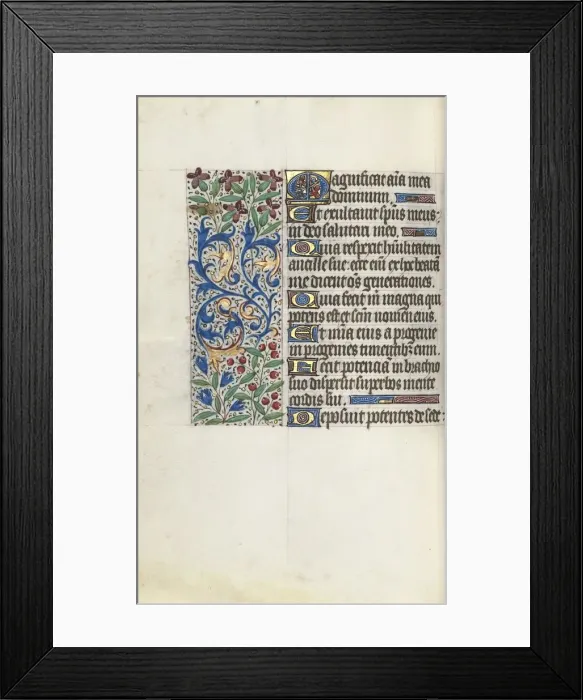 Magnificat aīa mea
dominum.
Et exultauit sp̄us meus:
in deo salutari meo.
Quia respexit hūilitatem
ancille sue: ecce eni ex hoc beatā
me dicent oēs generationes.
Quia fecit m̄ magna qui
potens est: et scm̄ nomen eius.
Et mīa eius a progenie
in progenies timentibȝ eum.
Fecit potenciā in brachio
suo dispersit superbos mente
cordis sui.
Deposuit potentes de sede: